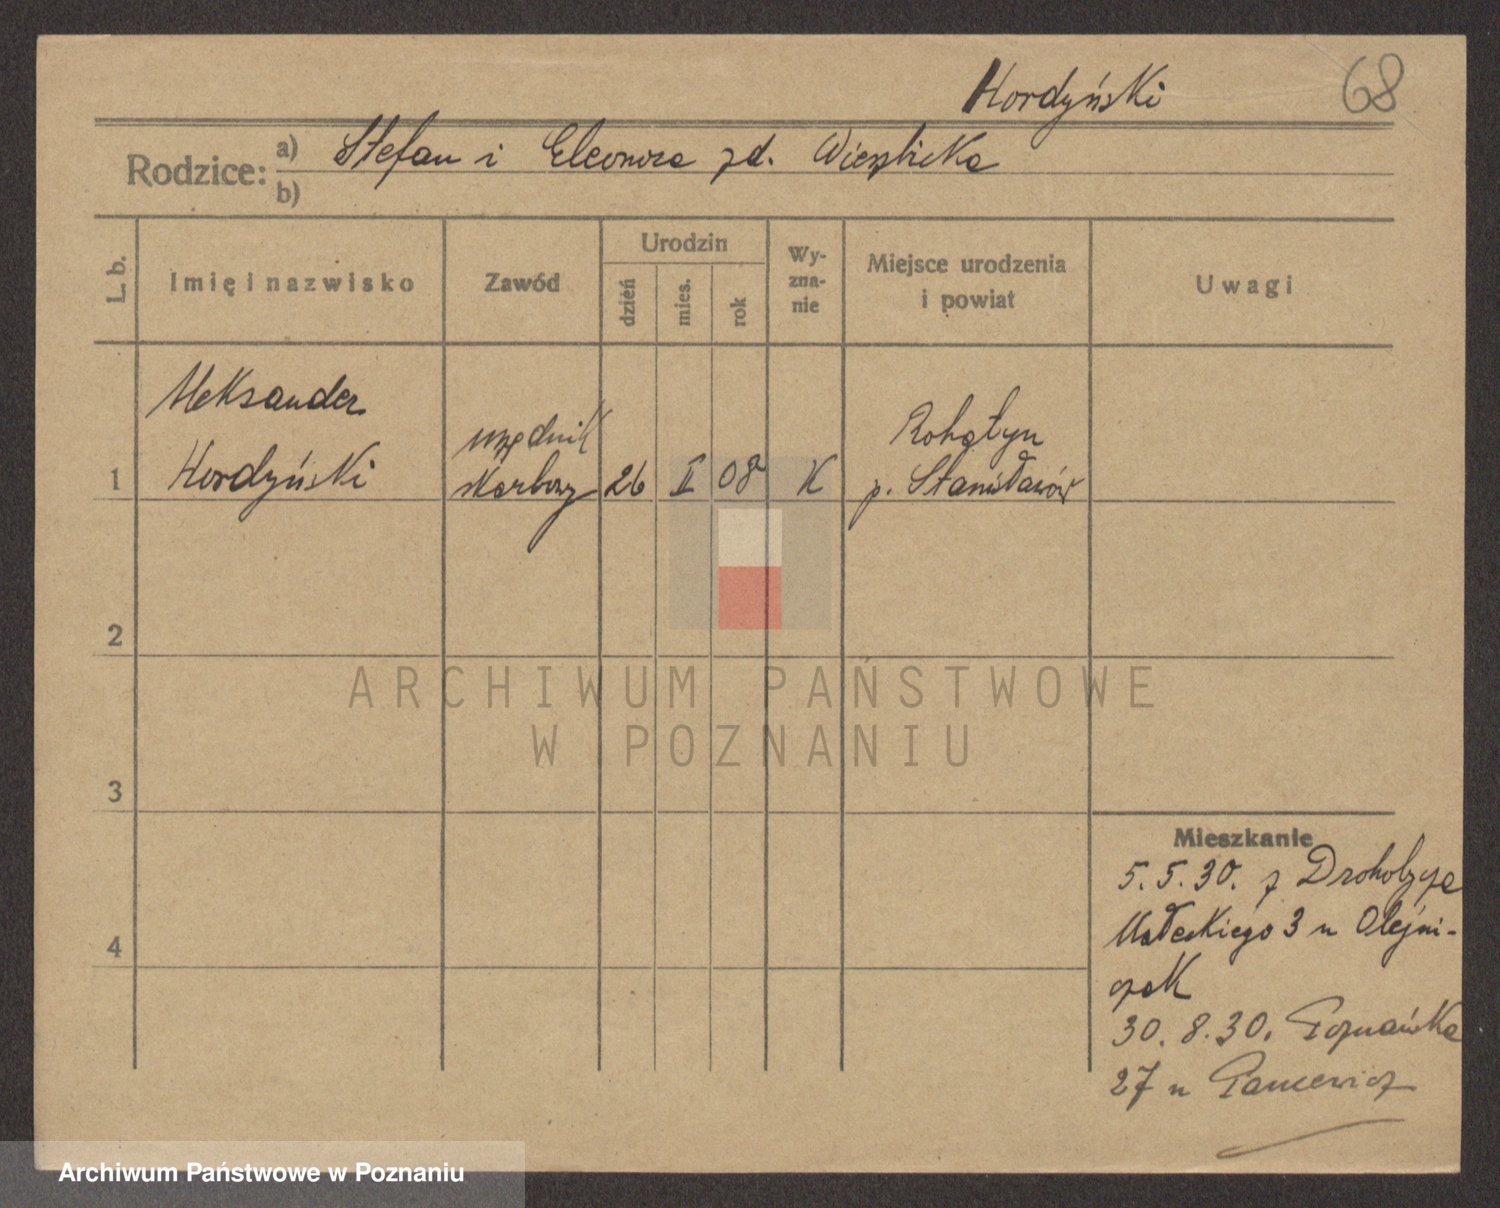 Hordyński 68
Rodzice: a) Stefan i Eleonora zd. Wierzbicka
b)
L. b. Imię i nazwisko Zawód Urodzin dzień mies. rok Wy-zna-nie Miejsce urodzenia i powiat Uwagi
Aleksander
urzędnik Rohatyn
1 Hordyński skarbowy 26 II 08 K p. Stanisławów
2
ARCHIWUM PAŃSTWOWE
W POZNANIU
3
Mieszkanie
5.5.30. z Drohobycza
4 Małeckiego 3 u Olejni-
czak
30.8.30. Poznańska
27 u
Archiwum Państwowe w Poznaniu